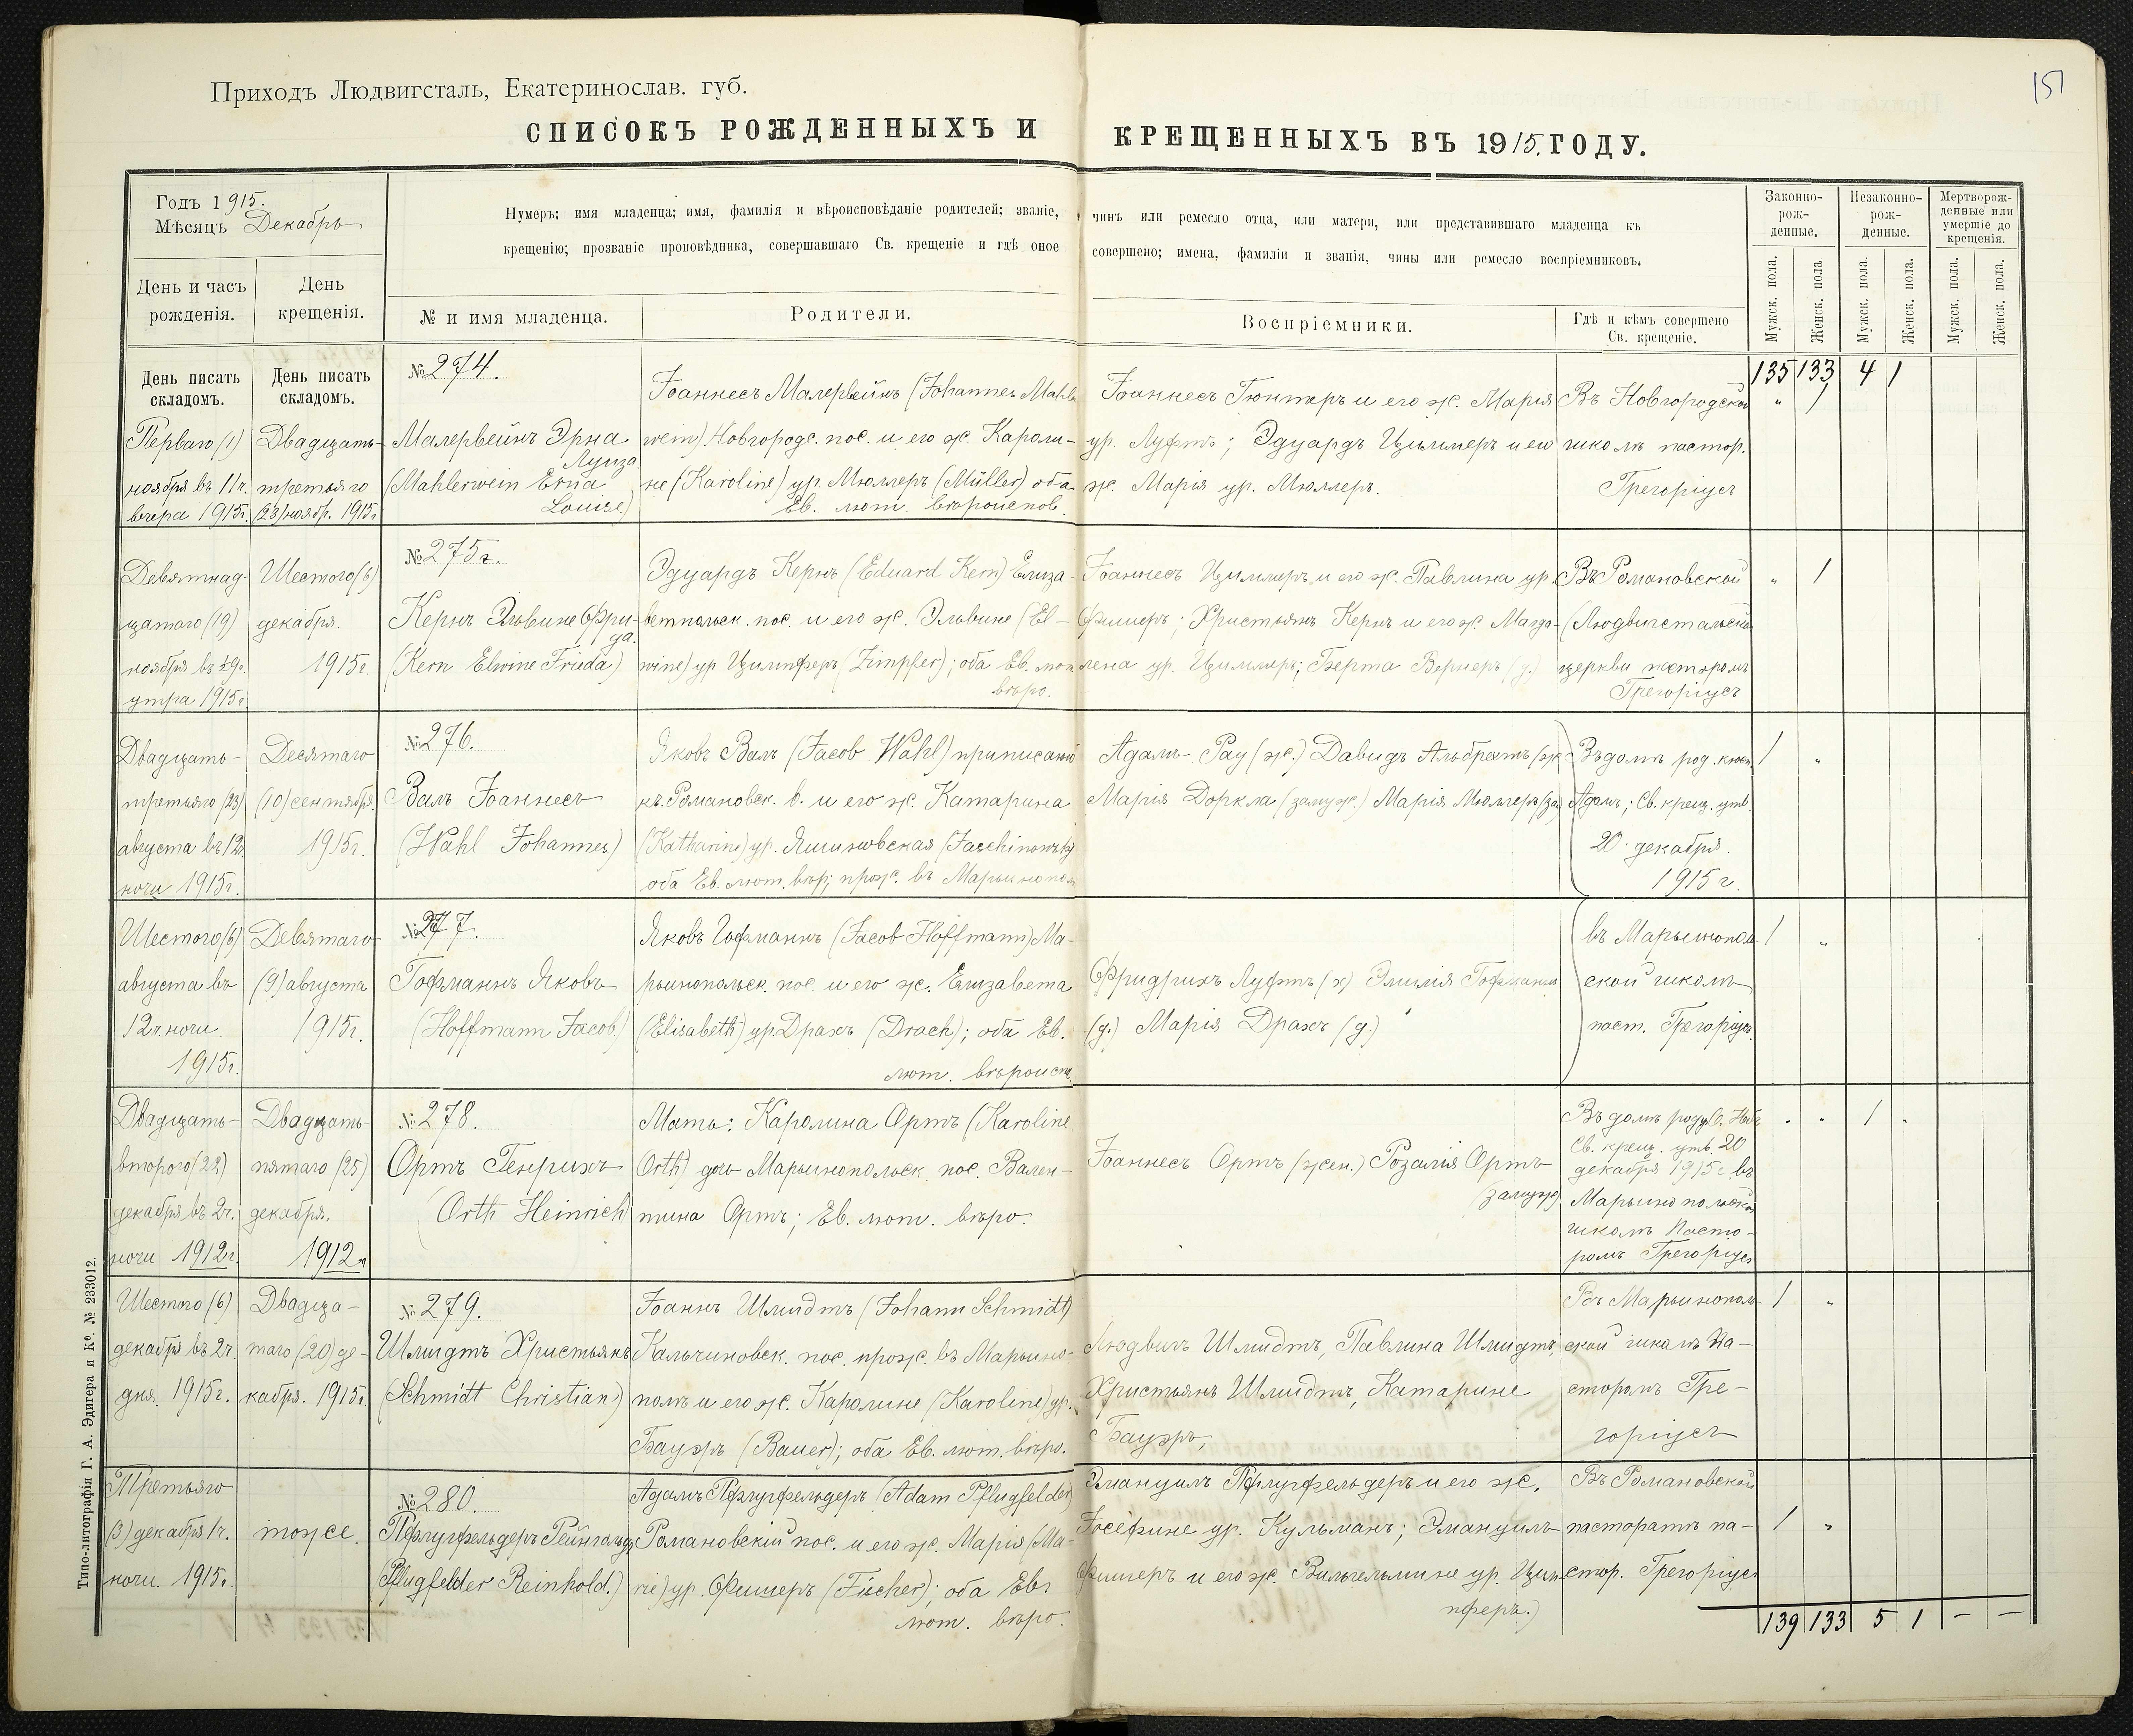 151
Приходъ Людвигсталь, Екатеринослав. губ.
СПИСОКЪ РОЖДЕННЫХЪ И КРЕЩЕННЫХЪ ВЪ 1915. ГОДУ.
Годъ 1915.
Мѣсяцъ Декабрь
День и часъ рожденія.
День крещенія.
Нумеръ; имя младенца; имя, фамилія и вѣроисповѣданіе родителей; званіе, чинъ или ремесло отца, или матери, или представившаго младенца къ
крещенію; прозваніе проповѣдника, совершавшаго Св. крещеніе и гдѣ оное совершено; имена, фамиліи и званія, чины или ремесло воспріемниковъ.
№ и имя младенца.
Родители.
Воспріемники.
Гдѣ и кѣмъ совершено
Св. крещеніе.
Законно-
рож-
денные.
Незаконно-
рож-
денные.
Мертворож-
денные или
умершіе до
крещенія.
Мужск. пола.
Женск. пола.
Мужск. пола.
Женск. пола.
Мужск. пола.
Женск. пола.
135 133 4 1
День писать
складомъ.
Перваго (1)
ноября въ 11 ч.
вечера 1915 г.
День писать
складомъ.
Двадцать-
третьяго
(23) ноябр. 1915 г.
№ 274.
Малервейнъ Эрна
Луиза
(Mahlerwein Erna
Louise)
Іоаннесъ Малервейнъ (Johannes Mahler
wein) Новгородс. пос. и его ж. Кароли-
не (Karoline) ур. Мюллеръ (Müller) оба
Ев. лют. вѣроиспов.
Іоаннесъ Гюнтеръ и его ж. Марія
ур. Луфтъ; Эдуардъ Циммеръ и его
ж. Марія ур. Мюллеръ.
Въ Новгородской
школѣ пастор.
Грегоріусъ
" 1
Девятнад-
цатаго (19)
ноября въ ½9 ч.
утра 1915 г.
Шестого (6)
декабря.
1915 г.
№ 275 г.
Кернъ Эльвине Фри-
да.
(Kern Elwine Frieda)
Эдуардъ Кернъ (Eduard Kern) Елиза-
ветпольск. пос. и его ж. Эльвине (El-
wine) ур Цимпферъ (Zimpfer); оба Ев. лют
вѣро.
Іоаннесъ Циммеръ и его ж. Павлина ур.
Фишеръ; Христьянъ Кернъ и его ж. Магда-
лена ур. Циммеръ; Берта Вернеръ (д.)
Въ Романовской
(Людвигстальской
церкви пасторомъ
Грегоріусъ
" 1
Двадцать-
третьяго (23)
августа въ 12 ч.
ночи 1915 г.
Десятаго
(10) сентября.
1915 г.
№ 276.
Валъ Іоаннесъ
(Wahl Johannes)
Яковъ Валъ (Jacob Wahl) приписаный
къ Романовск. в. и его ж. Катарина
(Katharine) ур. Яшиновская (Jaschinowsky
оба Ев. лют. вѣр; прож. въ Марьинопол
Адамъ Рау (ж.) Давидъ Альбретъ (ж
Марія Доркла (замуж.) Марія Мюллеръ (за)
Въ домѣ род.
Адамъ; Св. крещ. утв.
20 декабря.
1915 г.
1 "
Шестого (6)
августа въ
12 ч. ночи.
1915 г.
Девятаго
(9) августа
1915 г.
№ 277.
Гофманнъ Яковъ
(Hoffmann Jacob)
Яковъ Гофманнъ (Jacob Hoffmann) Ма-
рьинопольск. пос. и его ж. Елизавета
(Elisabeth) ур Драхъ (Drach); оба Ев.
лют. вѣроисп.
Фридрихъ Луфтъ (х) Эмилія Гофманнъ
(д.) Марія Драхъ (д.)
въ Марьинополь
ской школѣ
паст. Грегоріусъ.
1 "
Двадцать-
второго (22)
декабря въ 2 ч.
ночи 1912 г.
Двадцать-
пятаго (25)
декабря.
1912 г.
№ 278.
Ортъ Генрихъ
(Orth Heinrich
Мать: Каролина Ортъ (Karoline
Orth) дочь Марьинопольск. пос. Вален-
тина Ортъ; Ев. лют. вѣро.
Іоаннесъ Ортъ (жен.) Розалія Ортъ
(замуж)
Въ домѣ род.
Св. крещ. утв. 20
декабря 1915 г. въ
Марьинопольской
школѣ Пасто-
ромъ Грегоріусъ
" " 1 "
Шестого (6)
декабря въ 2 ч.
дня. 1915 г.
Двадца-
таго (20) де-
кабря. 1915 г.
№ 279.
Шмидтъ Христьянъ
(Schmidt Christian)
Іоаннъ Шмидтъ (Johann Schmidt)
Кальчиновск. пос. прож. въ Марьино-
полѣ и его ж. Каролине (Karoline) ур.
Бауэръ (Bauer); оба Ев. лют. вѣро.
Людвигъ Шмидтъ, Павлина Шмидтъ,
Христьянъ Шмидтъ, Катарине
Бауэръ,
Въ Марьинополь-
ской школѣ Па-
сторомъ Гре-
горіусъ
1 "
Третьяго
(3) декабря 1 ч.
ночи. 1915 г.
тоже.
№ 280.
Пфлугфельдеръ Рейнгольдъ
(Pflugfelder Reinhold.)
Адамъ Пфлугфельдеръ (Adam Pflugfelder)
Романовскій пос. и его ж. Марія (Ma-
rie) ур. Фишеръ (Fischer); оба Ев.
лют. вѣро.
Эмануилъ Пфлугфельдеръ и его ж.
Іосефине ур. Кульманъ; Эмануилъ
Фишеръ и его ж. Вильгельмине ур. Цим-
пферъ.)
Въ Романовской
пасторатѣ па-
стор. Грегоріусъ
1 "
139 133 5 1 — —
Типо-литографія Г. А. Эдигера и Ко. № 233012.